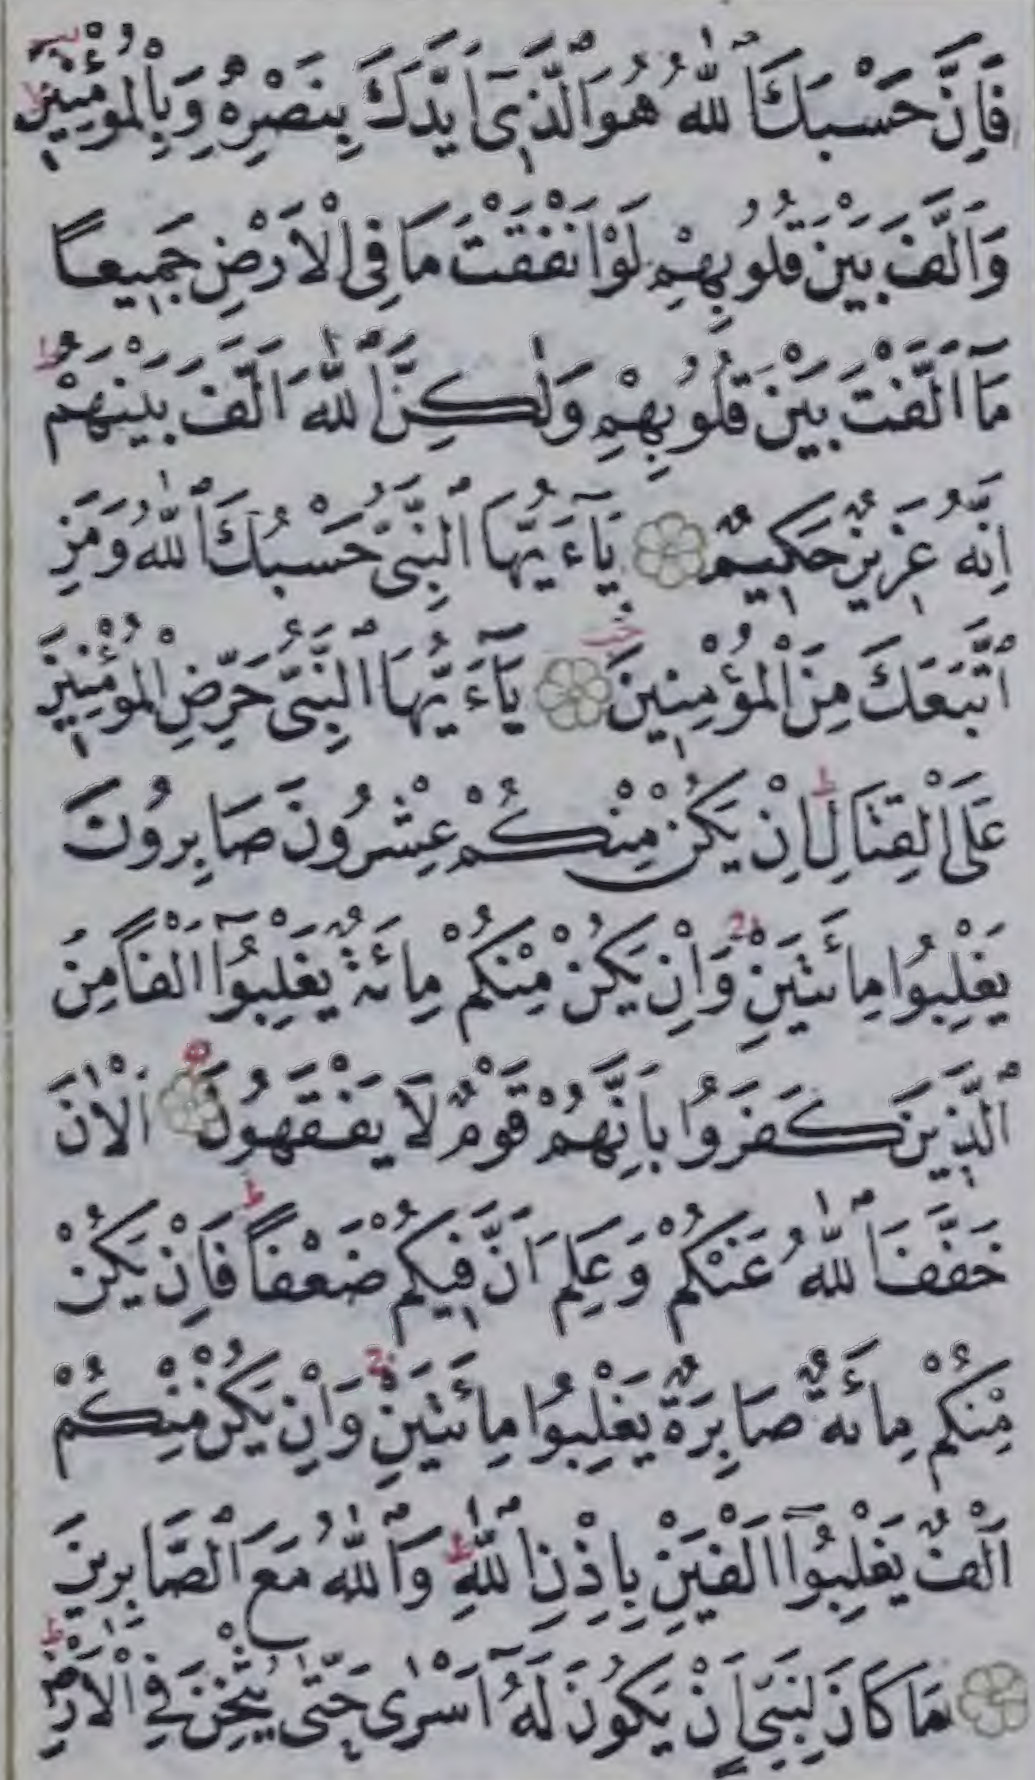 فَاِنَّ حَسْبَكَ اللّٰهُ هُوَ الَّذ۪ٓي اَيَّدَكَ بِنَصْرِه۪ وَبِالْمُؤْمِن۪ينَۙ
وَاَلَّفَ بَيْنَ قُلُوبِهِمْ لَوْ اَنْفَقْتَ مَا فِي الْاَرْضِ جَم۪يعًا
مَٓا اَلَّفْتَ بَيْنَ قُلُوبِهِمْ وَلٰكِنَّ اللّٰهَ اَلَّفَ بَيْنَهُمْۜ
اِنَّهُ عَز۪يزٌ حَك۪يمٌ يَٓاءَيُّهَا النَّبِيُّ حَسْبُكَ اللّٰهُ وَمَنِ
اتَّبَعَكَ مِنَ الْمُؤْمِن۪ينَ يَٓاءَيُّهَا النَّبِيُّ حَرِّضِ الْمُؤْمِن۪ينَ
عَلَى الْقِتَالِۜ اِنْ يَكُنْ مِنْكُمْ عِشْرُونَ صَابِرُونَ
يَغْلِبُوا مِائَتَيْنِۚ وَاِنْ يَكُنْ مِنْكُمْ مِائَةٌ يَغْلِبُٓوا اَلْفًا مِنَ
الَّذ۪ينَ كَفَرُوا بِاَنَّهُمْ قَوْمٌ لَا يَفْقَهُونَ اَلْاٰنَ
خَفَّفَ اللّٰهُ عَنْكُمْ وَعَلِمَ اَنَّ ف۪يكُمْ ضَعْفًاۜ فَاِنْ يَكُنْ
مِنْكُمْ مِائَةٌ صَابِرَةٌ يَغْلِبُوا مِائَتَيْنِۚ وَاِنْ يَكُنْ مِنْكُمْ
اَلْفٌ يَغْلِبُٓوا اَلْفَيْنِ بِاِذْنِ اللّٰهِۜ وَاللّٰهُ مَعَ الصَّابِر۪ينَ
مَا كَانَ لِنَبِيٍّ اَنْ يَكُونَ لَهُٓ اَسْرٰى حَتّٰى يُثْخِنَ فِي الْاَرْضِۜ